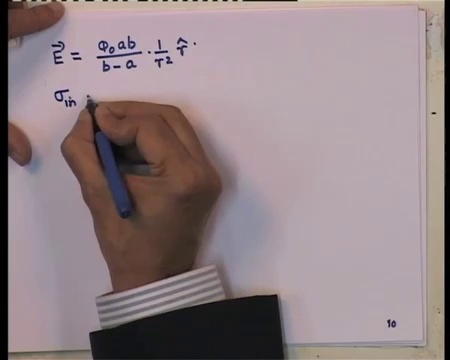 E⃗ = φ₀ab/(b-a) · 1/r² r̂.
σin
10